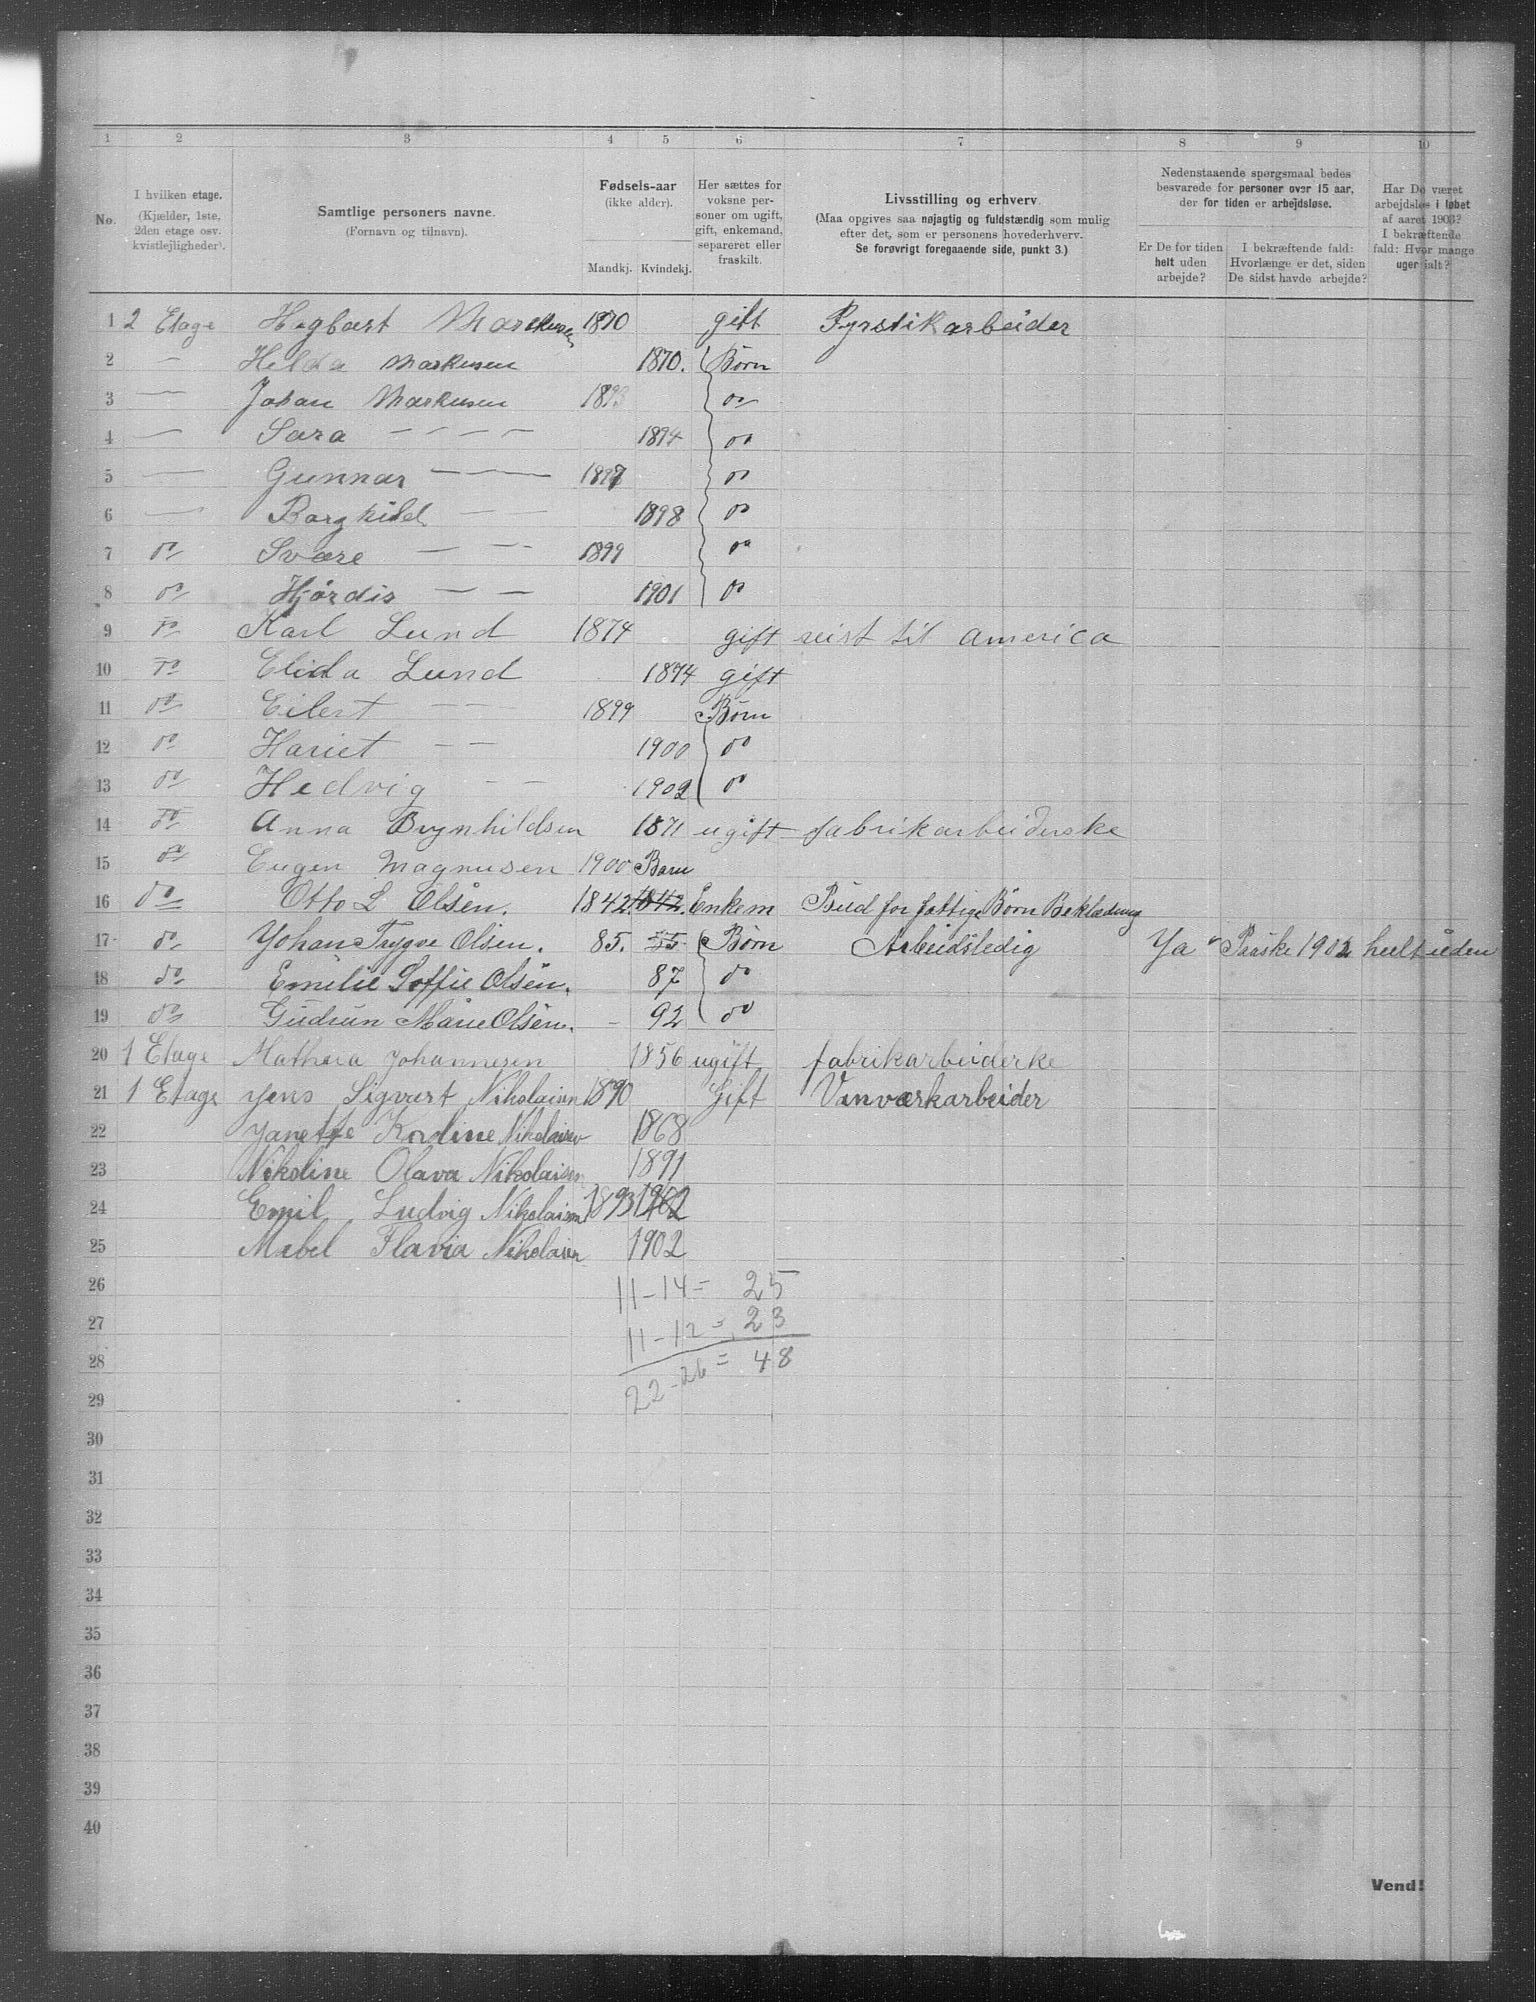 1 2 3 4 5 6 7 8 9 10
No.
I hvilken etage. (Kjælder, 1ste, 2den etage osv. kvistlejligheder).
Samtlige personers navne. (Fornavn og tilnavn).
Fødsels-aar (ikke alder).
Mandkj. Kvindekj.
Her sættes for voksne personer om ugift, gift, enkemand, separeret eller fraskilt.
Livsstilling og erhverv.
(Maa opgives saa nøjagtig og fuldstændig som mulig efter det, som er personens hovederhverv. Se forøvrigt foregaaende side, punkt 3.)
Nedenstaaende spørgsmaal bedes besvarede for personer over 15 aar, der for tiden er arbejdsløse.
Er De for tiden helt uden arbejde?
I bekræftende fald: Hvorlænge er det, siden De sidst havde arbejde?
Har De været arbejdsløs i løbet af aaret 1903? I bekræftende fald: Hvor mange uger ialt?
1 2 Etage Hagbart Markusen 1870 gift Fyrstikarbeider
2 — Helda Markusen 1870. Børn
3 — Johan Markusen 1893 do
4 — Sara — — — — 1894 do
5 — Gunnar — — — 1897 do
6 — Borghild — — 1898 do
7 do Sváre — — 1899 do
8 do Hjørdis — — 1901 do
9 do Karl Lund 1874 gift reist til america
10 do Elida Lund 1874 gift
11 do Eilert — — 1899 Børn
12 do Hariet — — 1900 do
13 do Hedvig — — 1902 do
14 do Anna Brynhildsen 1871 ugift fabrikarbeiderske
15 do Eugen Magnusen 1900 Barn
16 do Otto L Olsen. 1842 1842. Enkem Bud for fattige Børn Beklædning
17 do Yohan Trygve Olsen. 85. Børn Arbeidsledig Ja Paaske 1902 heelt uden
18 do Emilie Soffie Olsen. 87 do
19 do Gudrun Marie Olsen. – 92 do
20 1 Etage Mathea Johannesen 1856 ugift fabrikarbeiderke
21 1 Etage Jens Sigvart Nikolaisen 1890 Gift Vanværkarbeider
22 Janette Kordine Nikolaisen 1868
23 Nikoline Olava Nikolaisen 1891
24 Emil Ludvig Nikolaisen 1893 1902
25 Mabel Flavia Nikolaisen 1902
26 11–14 = 25
27 11–12 = 23
28 22–26 = 48
29
30
31
32
33
34
35
36
37
38
39
40
Vend!